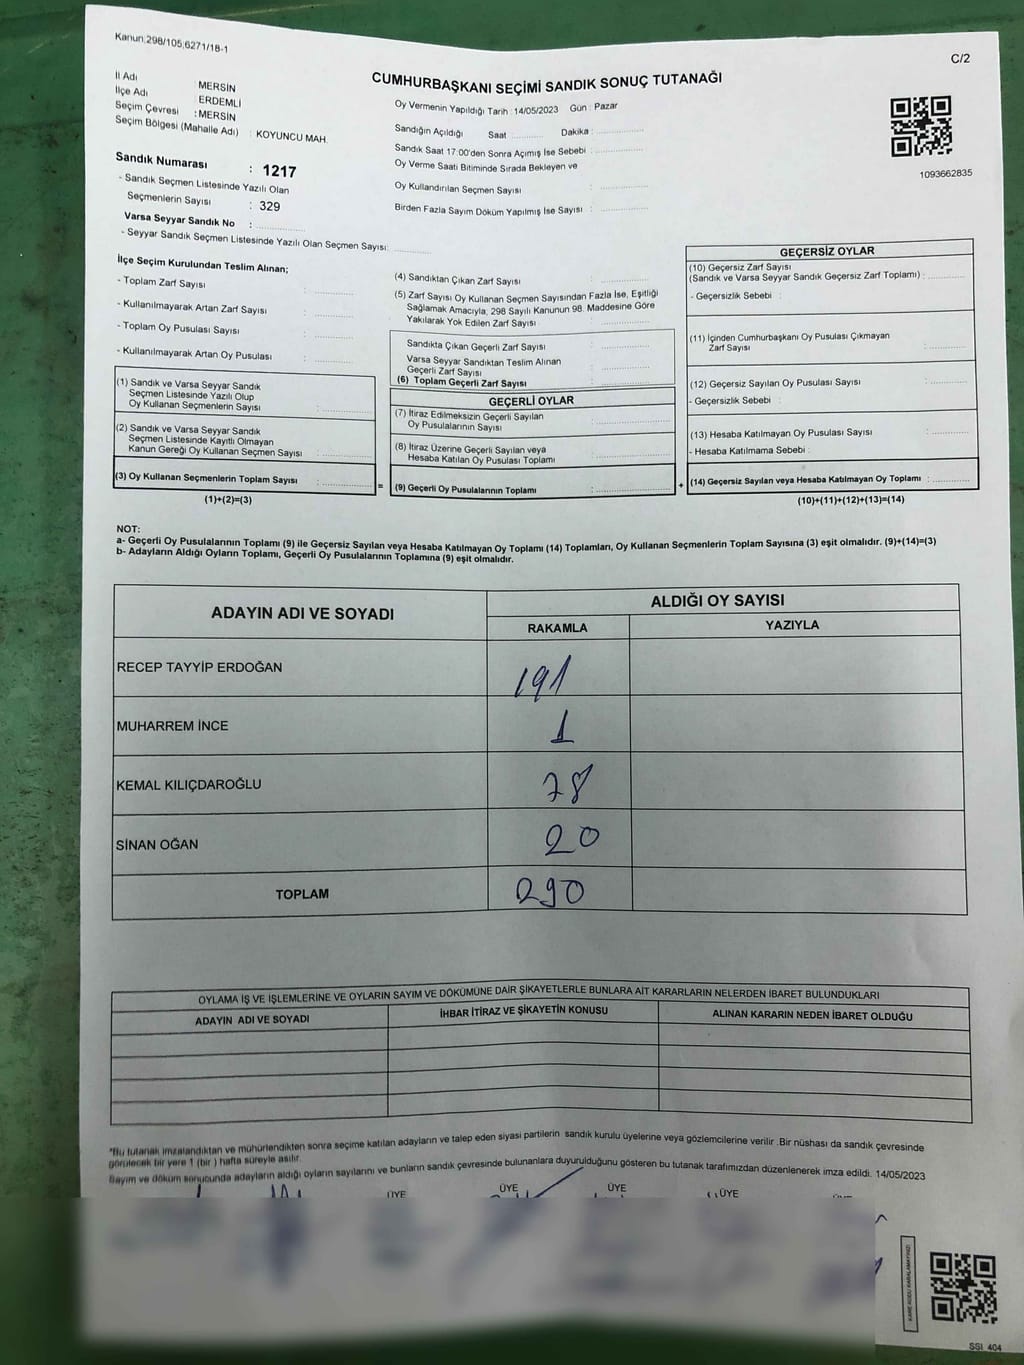 Kanun:298/105;6271/18-1
C/2
CUMHURBAŞKANI SEÇİMİ SANDIK SONUÇ TUTANAĞI
İl Adı : MERSİN
İlçe Adı : ERDEMLİ
Seçim Çevresi : MERSİN
Seçim Bölgesi (Mahalle Adı) : KOYUNCU MAH.
Sandık Numarası : 1217
- Sandık Seçmen Listesinde Yazılı Olan
Seçmenlerin Sayısı : 329
Varsa Seyyar Sandık No :
- Seyyar Sandık Seçmen Listesinde Yazılı Olan Seçmen Sayısı:
Oy Vermenin Yapıldığı Tarih : 14/05/2023 Gün : Pazar
Sandığın Açıldığı Saat Dakika :
Sandık Saat 17:00'den Sonra Açımış İse Sebebi :
Oy Verme Saati Bitiminde Sırada Bekleyen ve
Oy Kullandırılan Seçmen Sayısı :
Birden Fazla Sayım Döküm Yapılmış İse Sayısı :
1093662835
İlçe Seçim Kurulundan Teslim Alınan;
- Toplam Zarf Sayısı :
- Kullanılmayarak Artan Zarf Sayısı :
- Toplam Oy Pusulası Sayısı :
- Kullanılmayarak Artan Oy Pusulası :
(1) Sandık ve Varsa Seyyar Sandık
Seçmen Listesinde Yazılı Olup
Oy Kullanan Seçmenlerin Sayısı :
(2) Sandık ve Varsa Seyyar Sandık
Seçmen Listesinde Kayıtlı Olmayan
Kanun Gereği Oy Kullanan Seçmen Sayısı :
(3) Oy Kullanan Seçmenlerin Toplam Sayısı :
(1)+(2)=(3)
=
(4) Sandıktan Çıkan Zarf Sayısı :
(5) Zarf Sayısı Oy Kullanan Seçmen Sayısından Fazla İse, Eşitliği
Sağlamak Amacıyla, 298 Sayılı Kanunun 98. Maddesine Göre
Yakılarak Yok Edilen Zarf Sayısı :
Sandıkta Çıkan Geçerli Zarf Sayısı :
Varsa Seyyar Sandıktan Teslim Alınan
Geçerli Zarf Sayısı :
(6) Toplam Geçerli Zarf Sayısı :
GEÇERLİ OYLAR
(7) İtiraz Edilmeksizin Geçerli Sayılan
Oy Pusulalarının Sayısı :
(8) İtiraz Üzerine Geçerli Sayılan veya
Hesaba Katılan Oy Pusulası Toplamı :
(9) Geçerli Oy Pusulalarının Toplamı :
+
GEÇERSİZ OYLAR
(10) Geçersiz Zarf Sayısı
(Sandık ve Varsa Seyyar Sandık Geçersiz Zarf Toplamı) :
- Geçersizlik Sebebi :
(11) İçinden Cumhurbaşkanı Oy Pusulası Çıkmayan
Zarf Sayısı :
(12) Geçersiz Sayılan Oy Pusulası Sayısı :
- Geçersizlik Sebebi :
(13) Hesaba Katılmayan Oy Pusulası Sayısı :
- Hesaba Katılmama Sebebi :
(14) Geçersiz Sayılan veya Hesaba Katılmayan Oy Toplamı :
(10)+(11)+(12)+(13)=(14)
NOT:
a- Geçerli Oy Pusulalarının Toplamı (9) ile Geçersiz Sayılan veya Hesaba Katılmayan Oy Toplamı (14) Toplamları, Oy Kullanan Seçmenlerin Toplam Sayısına (3) eşit olmalıdır. (9)+(14)=(3)
b- Adayların Aldığı Oyların Toplamı, Geçerli Oy Pusulalarının Toplamına (9) eşit olmalıdır.
ADAYIN ADI VE SOYADI ALDIĞI OY SAYISI
RAKAMLA YAZIYLA
RECEP TAYYİP ERDOĞAN 191
MUHARREM İNCE 1
KEMAL KILIÇDAROĞLU 78
SİNAN OĞAN 20
TOPLAM 290
OYLAMA İŞ VE İŞLEMLERİNE VE OYLARIN SAYIM VE DÖKÜMÜNE DAİR ŞİKAYETLERLE BUNLARA AİT KARARLARIN NELERDEN İBARET BULUNDUKLARI
ADAYIN ADI VE SOYADI İHBAR İTİRAZ VE ŞİKAYETİN KONUSU ALINAN KARARIN NEDEN İBARET OLDUĞU
*Bu tutanak imzalandıktan ve mühürlendikten sonra seçime katılan adayların ve talep eden siyasi partilerin sandık kurulu üyelerine veya gözlemcilerine verilir .Bir nüshası da sandık çevresinde
görülecek bir yere 1 (bir ) hafta süreyle asılır.
Sayım ve döküm sonucunda adayların aldığı oyların sayılarını ve bunların sandık çevresinde bulunanlara duyurulduğunu gösteren bu tutanak tarafımızdan düzenlenerek imza edildi. 14/05/2023
ÜYE ÜYE ÜYE ÜYE
KARE KODU KARALAMAYINIZ!
SSI 404